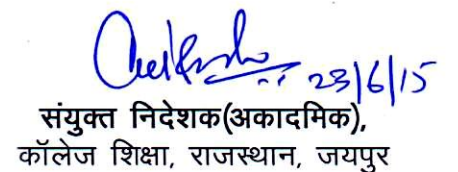 23/6/15
संयुक्त निदेशक(अकादमिक),
कॉलेज शिक्षा, राजस्थान, जयपुर